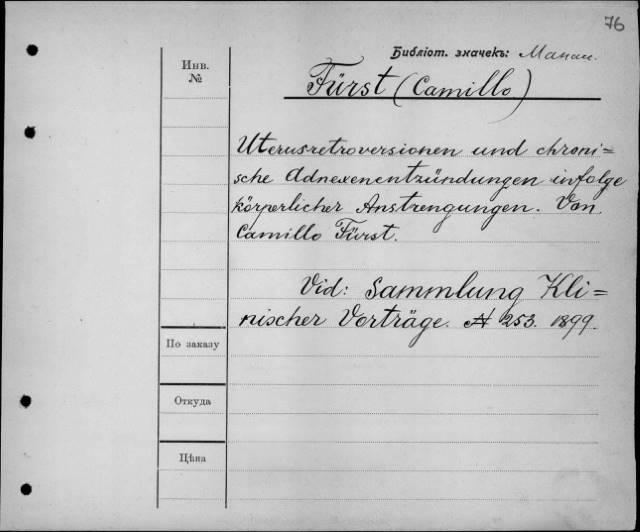 76
Библіот. значекъ:
Инв.
№
Fürst (Camillo)
Uterusretroversionen und chroni=
sche Adnexenentzündungen infolge
körperlicher Anstrengungen. Von
Camillo Fürst.
Vid: Sammlung Kli=
nischer Vorträge. № 253. 1899.
По заказу
Откуда
Цѣна